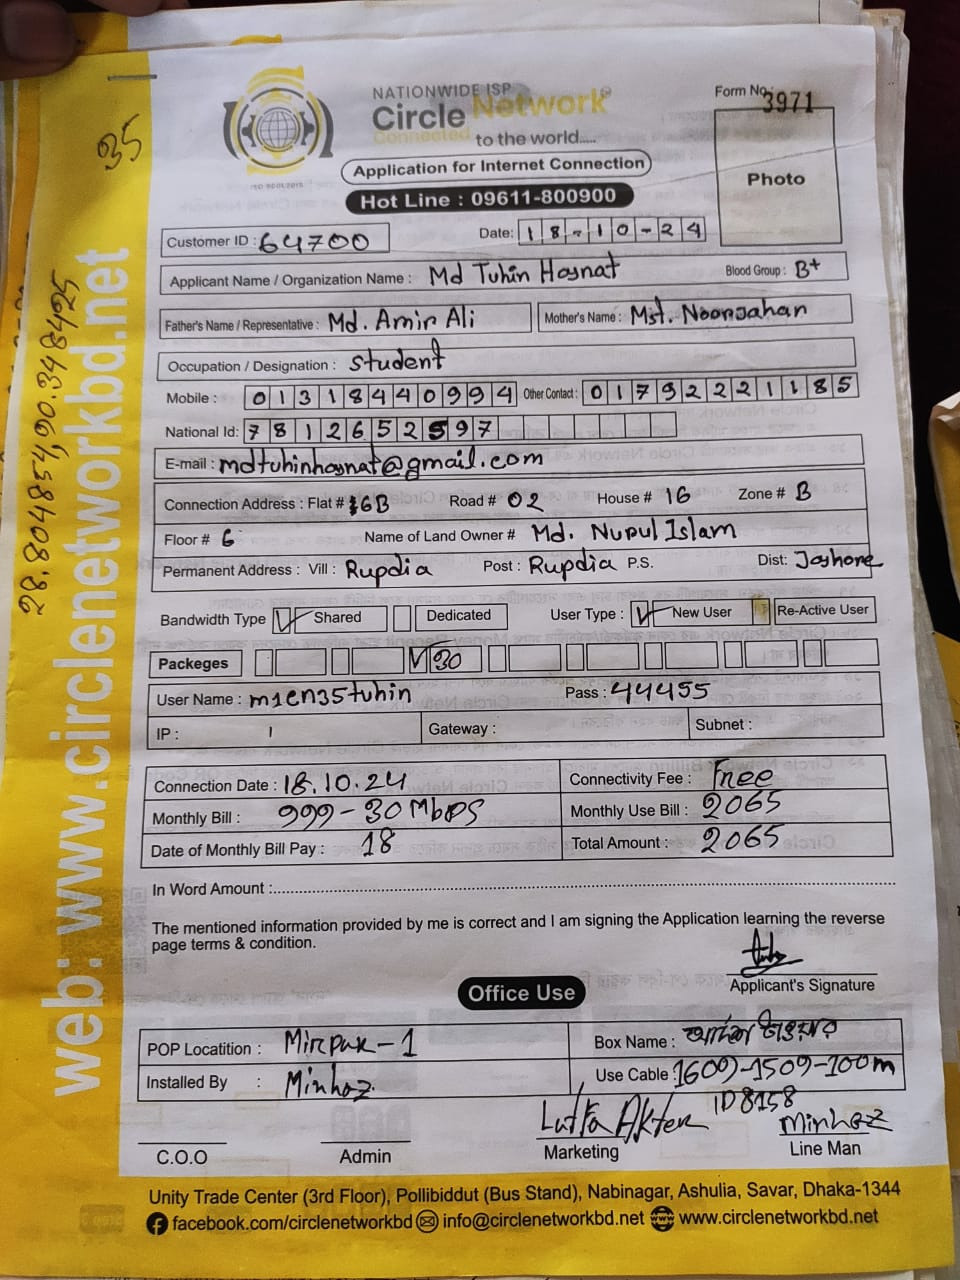 NATIONWIDE ISP
Circle Network
Connected to the world.....
ISO 9001:2015
Application for Internet Connection
Hot Line : 09611-800900
Form No: 3971
Photo
35
Customer ID : 64700
Date: 18-10-24
Applicant Name / Organization Name : Md Tuhin Hasnat Blood Group : B+
Father's Name / Representative : Md. Amir Ali Mother's Name : Mst. Noorjahan
Occupation / Designation : Student
Mobile : 01318440994 Other Contact : 01792221185
National Id: 7812652597
E-mail : mdtuhinhasnat@gmail.com
Connection Address : Flat # 6B Road # 02 House # 16 Zone # B
Floor # 6 Name of Land Owner # Md. Nurul Islam
Permanent Address : Vill : Rupdia Post : Rupdia P.S. Dist: Jashore
Bandwidth Type Shared Dedicated User Type : New User Re-Active User
Packeges 30
User Name : m1cn35tuhin Pass : 44455
IP : Gateway : Subnet :
Connection Date : 18.10.24 Connectivity Fee : Free
Monthly Bill : 999-30 Mbps Monthly Use Bill : 2065
Date of Monthly Bill Pay : 18 Total Amount : 2065
In Word Amount :
The mentioned information provided by me is correct and I am signing the Application learning the reverse
page terms & condition.
Applicant's Signature
Office Use
POP Locatition : Mirpur-1 Box Name :
Installed By : Minhaz Use Cable : 1609-1509-100m
Lutfa Akter ID 8158 Minhaz
C.O.O Admin Marketing Line Man
Unity Trade Center (3rd Floor), Pollibiddut (Bus Stand), Nabinagar, Ashulia, Savar, Dhaka-1344
facebook.com/circlenetworkbd info@circlenetworkbd.net www.circlenetworkbd.net
web: www.circlenetworkbd.net
28.804854,90.348425